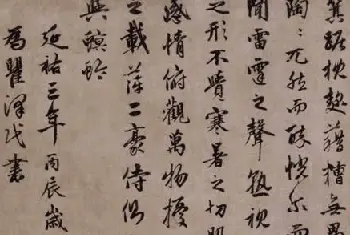 箕踞枕麴藉糟無思
陶〻兀然而醉怳尔而
聞雷霆之聲熟視
之形不覺寒暑之切肌
感情俯觀萬物擾
之載萍二豪侍側
與螟蛉
延祐三年丙辰歲
為瞿澤民書